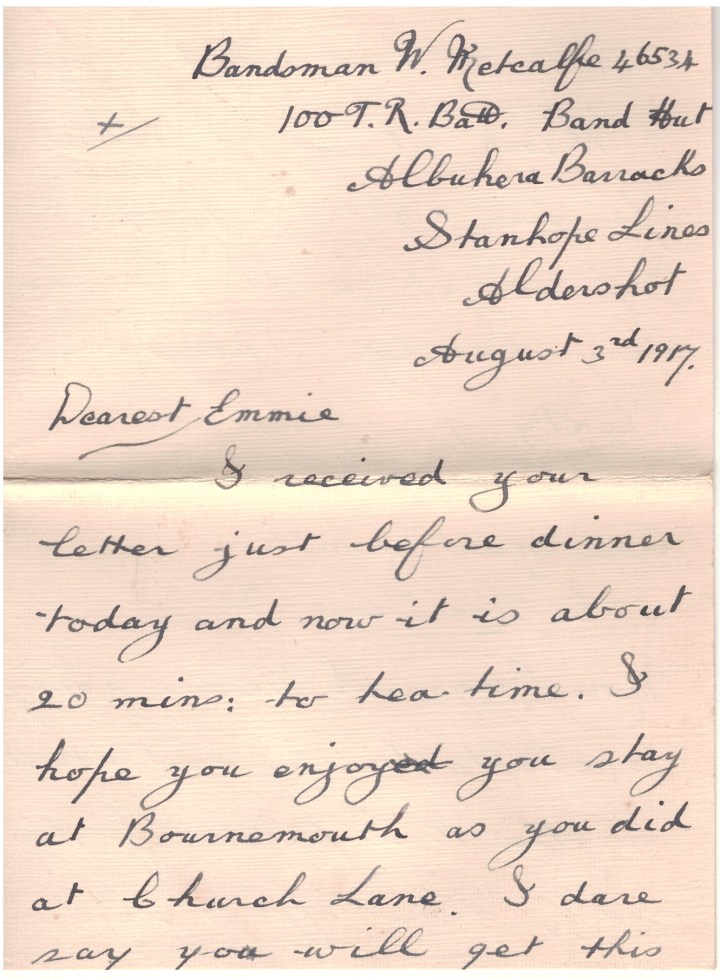 Bandsman W. Metcalfe 46534
+
100 T. R. Batt. Band Hut
Albuhera Barracks
Stanhope Lines
Aldershot
August 3rd 1917.
Dearest Emmie
I received your
letter just before dinner
today and now it is about
20 mins: to tea-time. I
hope you enjoyed you stay
at Bournemouth as you did
at Church Lane. I dare
say you will get this